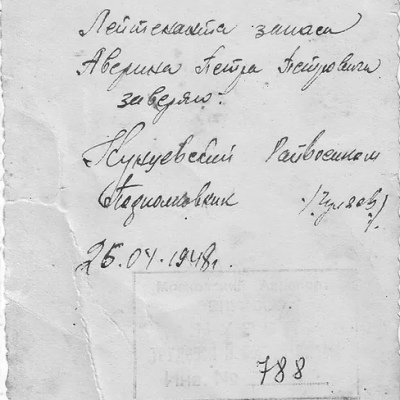 Лейтенанта запаса
Аверина Петра Петровича
заверяю:
Кунцевский Райвоенком
Подполковник /Гуляев/
26.04.1948г.
788